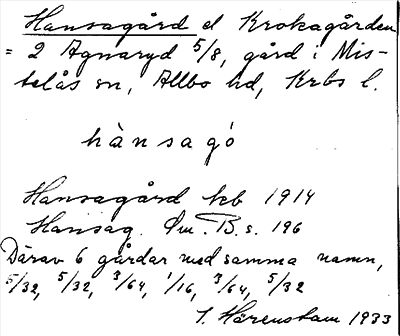 Hansagård el Krokagården
= 2 Agnaryd 5/8, gård i Mis-
telås sn, Allbo hd, Krbs l.
hànsagó
Hansagård kb 1914
Hansag. Öm. B. s. 196
Därav 6 gårdar med samma namn,
5/32, 5/32, 3/64, 1/16, 3/64, 5/32
S. Härenstam 1933